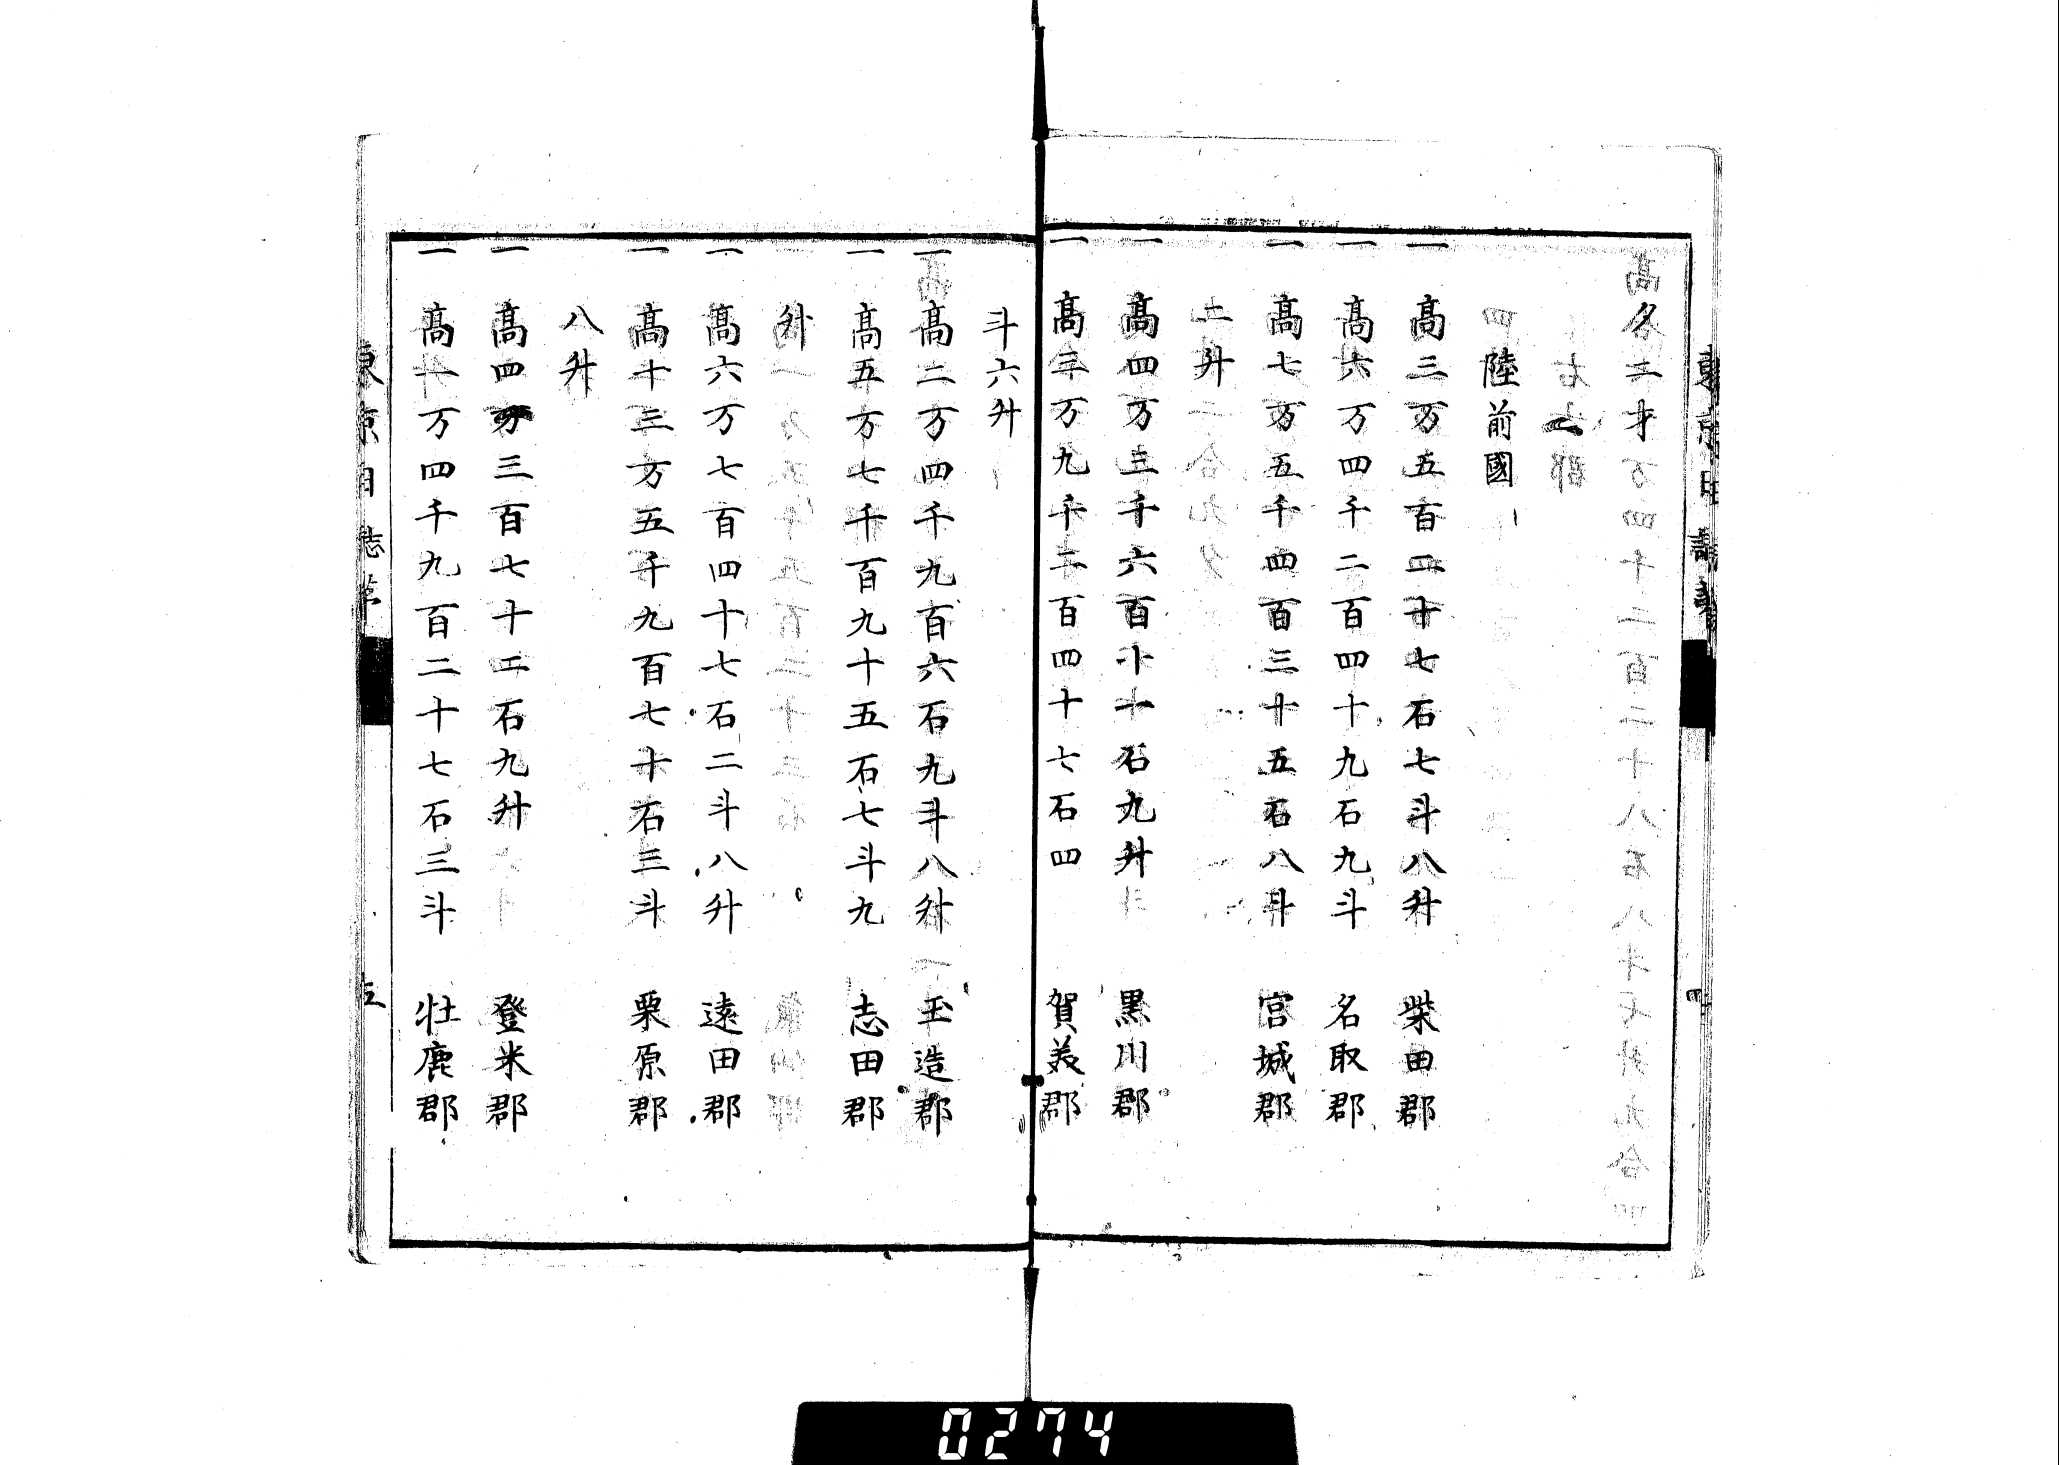 夕二才
陸前國
一 高三万五百二十七石七斗八升 柴田郡
一 高六万四千二百四十九石九斗 名取郡
一 高七万五千四百三十五石八斗 宮城郡
升
一 高四万三千六百十一石九升 黒川郡
一 高三万九千二百四十七石四 賀美郡
斗六升
一 高二万四千九百六石九斗八升 玉造郡
一 高五万七千百九十五石七斗九 志田郡
升
一 高六万七百四十七石二斗八升 遠田郡
一 高十三万五千九百七十石三斗 栗原郡
八升
一 高四万三百七十二石九升 登米郡
一 高一万四千九百二十七石三斗 牡鹿郡
東京日誌
五
0274